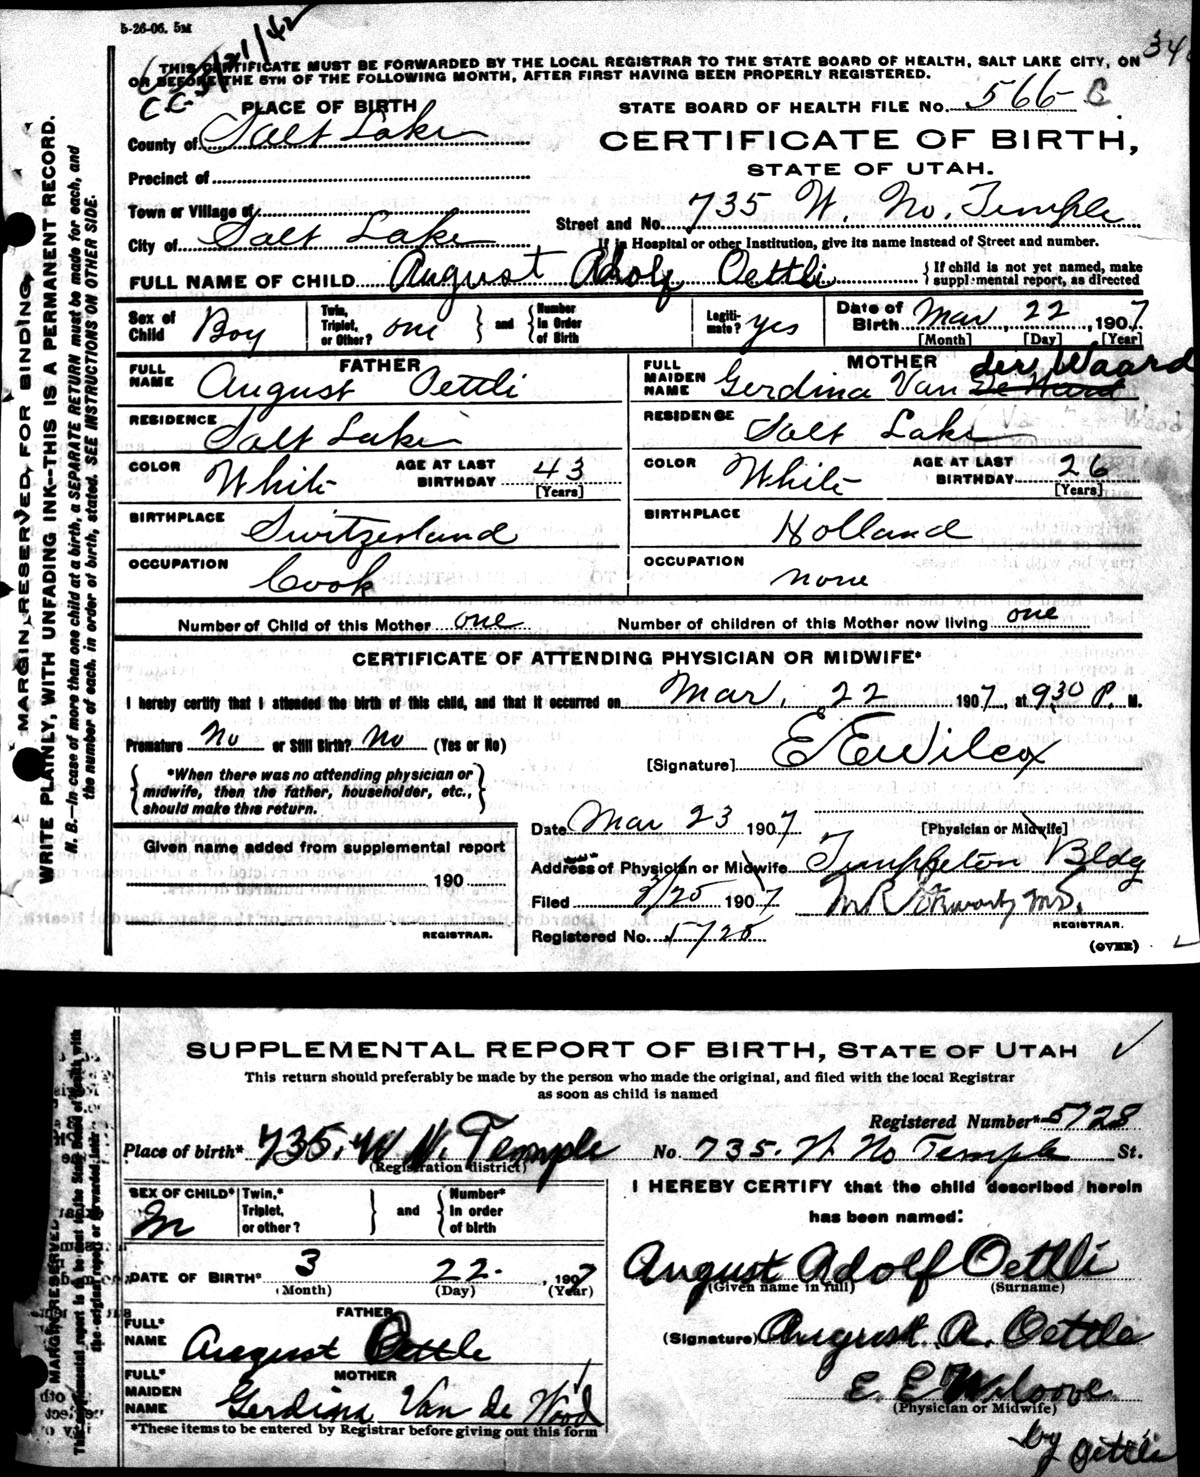 5-26-06. 5M
THIS CERTIFICATE MUST BE FORWARDED BY THE LOCAL REGISTRAR TO THE STATE BOARD OF HEALTH, SALT LAKE CITY, ON
OR BEFORE THE 5TH OF THE FOLLOWING MONTH, AFTER FIRST HAVING BEEN PROPERLY REGISTERED.
34
PLACE OF BIRTH
STATE BOARD OF HEALTH FILE No. 566- C
County of Salt Lake
CERTIFICATE OF BIRTH,
STATE OF UTAH.
Precinct of
Town or Village of
Street and No. 735 W. No. Temple
City of Salt Lake
If in Hospital or other Institution, give its name instead of Street and number.
FULL NAME OF CHILD August Adolf Oettli
{ If child is not yet named, make supplemental report, as directed
Sex of Child Boy
Twin, Triplet, or Other? one } and { Number in Order of Birth
Legitimate? yes
Date of Birth Mar, 22, 1907
[Month] [Day] [Year]
FATHER
MOTHER
FULL NAME August Oettli
FULL MAIDEN NAME Gerdina Van De Ward der Waard
RESIDENCE Salt Lake
RESIDENCE Salt Lake
COLOR White AGE AT LAST BIRTHDAY 43 [Years]
COLOR White AGE AT LAST BIRTHDAY 26 [Years]
BIRTHPLACE Switzerland
BIRTHPLACE Holland
OCCUPATION Cook
OCCUPATION none
Number of Child of this Mother one Number of children of this Mother now living one
CERTIFICATE OF ATTENDING PHYSICIAN OR MIDWIFE*
I hereby certify that I attended the birth of this child, and that it occurred on Mar, 22 1907, at 9,30 P. M.
Premature No or Still Birth? No (Yes or No)
[Signature] E E Wilcox
{ *When there was no attending physician or
midwife, then the father, householder, etc.,
should make this return. }
Date Mar 23 1907 [Physician or Midwife]
Given name added from supplemental report
190
REGISTRAR.
Address of Physician or Midwife Templeton Bldg
Filed 3/25 1907
REGISTRAR.
Registered No. 5728
(OVER)
MARGIN RESERVED FOR BINDING
WRITE PLAINLY, WITH UNFADING INK—THIS IS A PERMANENT RECORD.
N. B.—In case of more than one child at a birth, a SEPARATE RETURN must be made for each, and
the number of each, in order of birth, stated. SEE INSTRUCTIONS ON OTHER SIDE.
SUPPLEMENTAL REPORT OF BIRTH, STATE OF UTAH
This return should preferably be made by the person who made the original, and filed with the local Registrar
as soon as child is named
Registered Number* 5728
Place of birth* 735. W N. Temple No. 735. W No Temple St.
(Registration district)
SEX OF CHILD* M
Twin,* Triplet, or other? } and { Number* In order of birth
I HEREBY CERTIFY that the child described herein
has been named:
DATE OF BIRTH* 3 22. , 1907
(Month) (Day) (Year)
August Adolf Oettli
(Given name in full) (Surname)
FATHER
FULL* NAME August Oettle
(Signature) August A. Oettle
MOTHER
FULL* MAIDEN NAME Gerdina Van de Wood
E E
(Physician or Midwife)
by Oettli
*These items to be entered by Registrar before giving out this form
MARGIN RESERVED